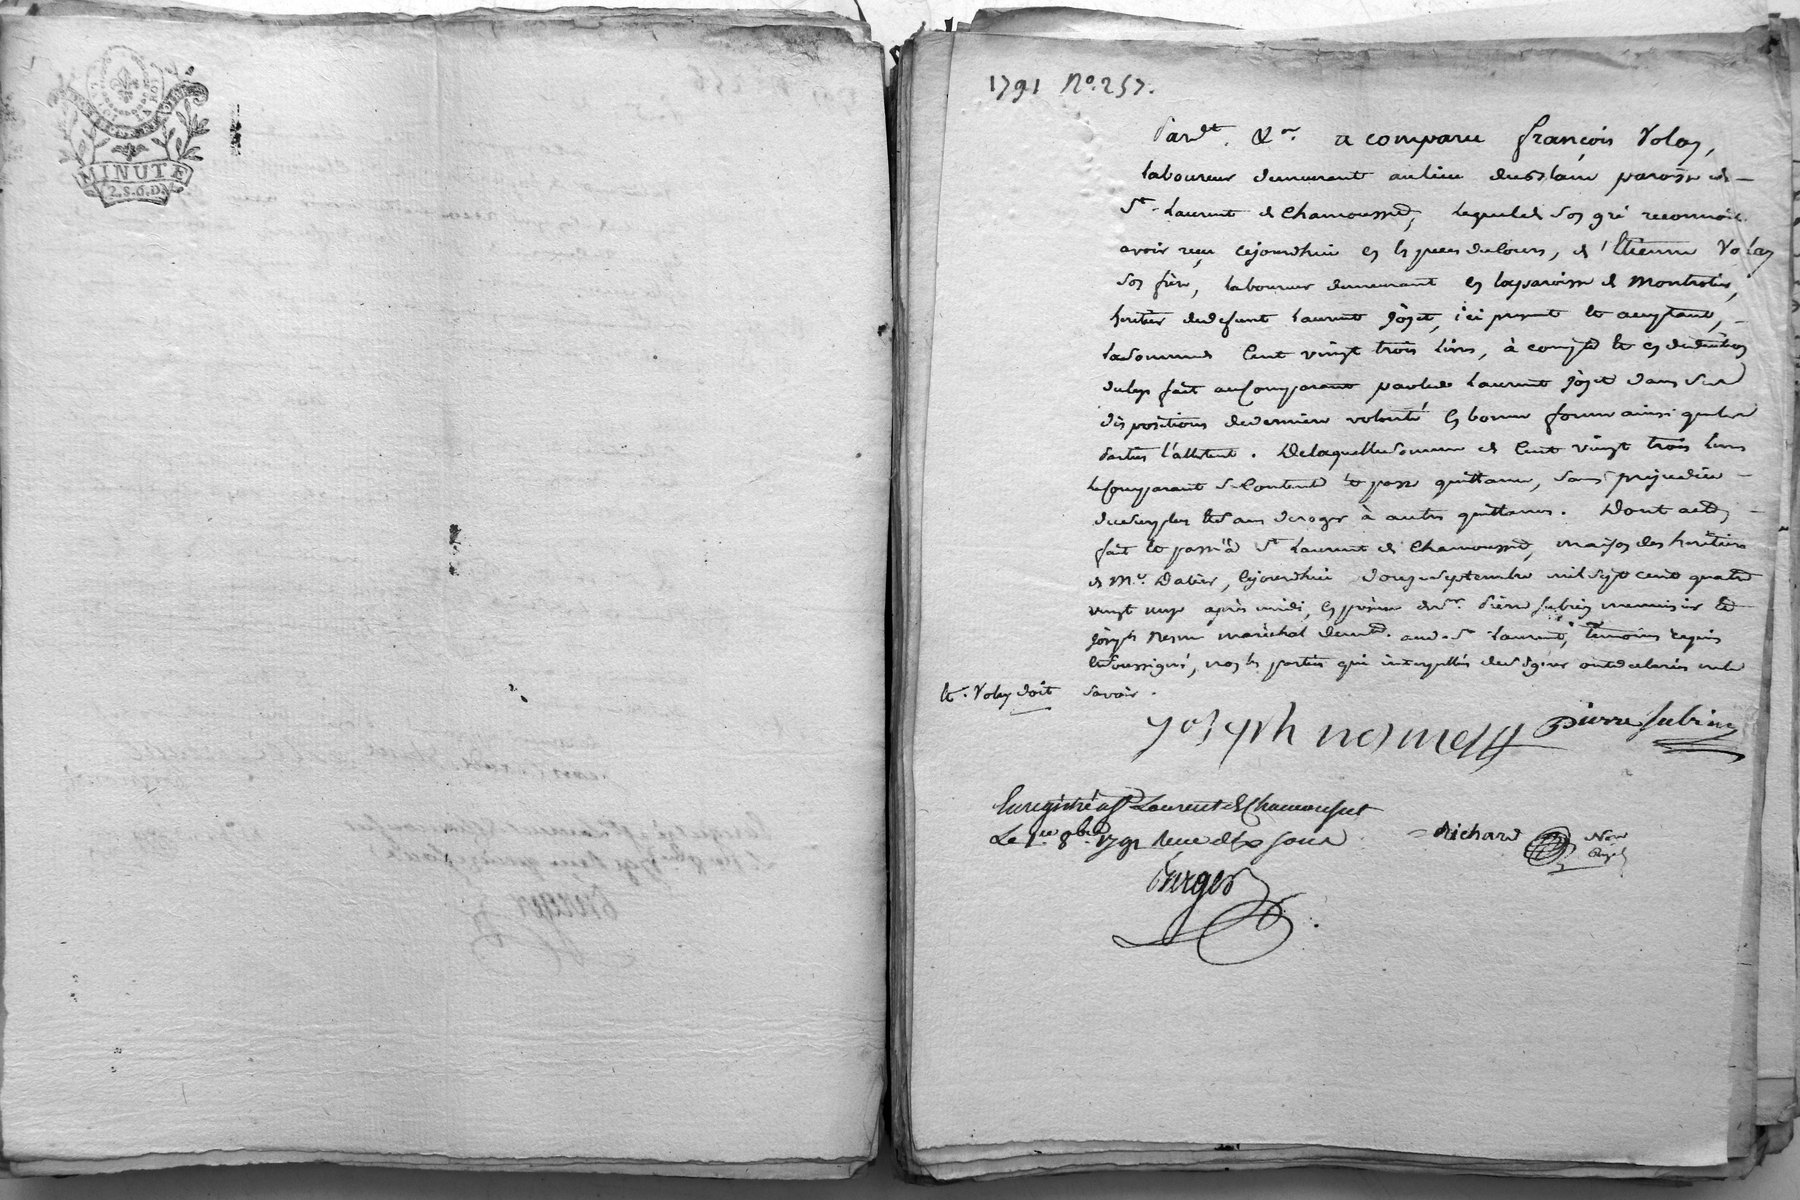 MINUTE
2.S.6.D
1791 N.o 257.
Pardt. &c. a comparu françois Volay,
laboureur demeurant au lieu du paroisse de
St. Laurent de Chamousset, lequel de son gré reconnoit
avoir reçu cejourdhui en especes de cours, d'Etienne Volay
son frère, laboureur demeurant en la paroisse de Montrotier,
heritier de defunt Laurent, ici present et acceptant,
la somme de Cent vingt trois livres, à compte et en deduction
du legs fait au Comparant par led. Laurent dans ses
dispositions de derniere volonté en bonne forme ainsi que les
parties l'attestent. De laquelle somme de Cent vingt trois livres
le comparant se Contente et passe quittance, sans prejudice
du surplus et sans deroger à autres quittances. Dont acte,
fait et passé à St. Laurent de Chamousset, maison des heritiers
de Me. Dalier, cejourdhui douze septembre mil sept cent quatre
vingt onze après midi, en présence de sr. Pierre Subrin menuisier et
Joseph Nesme maréchal demt. aud. St. Laurent, témoins requis
et soussignés, non les parties qui interpellées de signer ont declaré ne le
savoir.
et. Volay doit
joseph nesme
pierre Subrin
Enregistré a St. Laurent de Chamousset
Le 1er. 8bre. 1791 Reçu dix sous
Richard
Nore
Berger